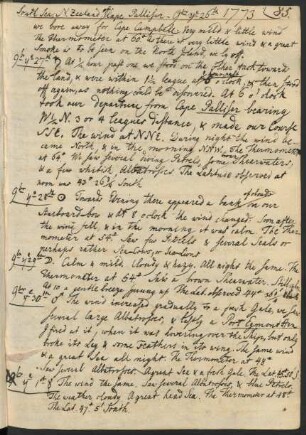 South Sea, N. Zeeland & Cape Palliser. 9br y.e 26th 1773 85.
we bore away for Cape Campbell, very mild & little wind
the thermometer at 60. At 9 there was very little wind & a great
Smoke is to be seen on the North Island, we is off
9br y.e 27th ♄. At past one we from on the Shore tack toward
the land, & were within 1½ league at 4 o'clock, & then stood
off again, as nothing could be discovered. At 8 o'clock
took our departure from Cape Pallisser bearing
W½N. 3 or 4 leagues distance, & made our Course
SSE. The wind at NNE. During the night the wind be
came North, & in the morning NNW. The Thermometer
at 54°. We saw several diving Petrels, some Shearwaters,
& a few whitish Albatrosses. The Latitude observed at
noon was 43° 26' South
9br y.e 28th ☉ Towards Evening there appeared a bank of clouds on our
Starboard-bow, & at 8 o'clock the wind changed. Soon after
the wind fell, & in the morning it was calm. The Ther-
mometer at 54. Saw few Petrels & several Seals or
perhaps rather Sea-Cows, or Sea-lions
9br y.e 29th ☽. Calm & mild, cloudy & hazy. All night the same. The
thermometer at 54°. Saw a brown Shearwater. Still
At 10 a gentle breeze sprung up. The Lat. observed 44°
9br y.e 30th ♂. The wind increased gradually to a fresh Gale, we saw
several large Albatrosses, & lastly a Port Egmont-hen
I fired at it, when it was hovering over the Ship, but only
broke its leg & some feathers in its wing. The same wind
& a great Sea all night. The thermometer at 48°.
Saw several Albatrosses. A great Sea & a fresh Gale. The Lat.
y.e 1st ☿ The wind the same. Saw several Albatrosses, & blue Petrels.
The weather cloudy. A great head Sea. The thermometer at 48°.
The Lat. 47° 5' South.